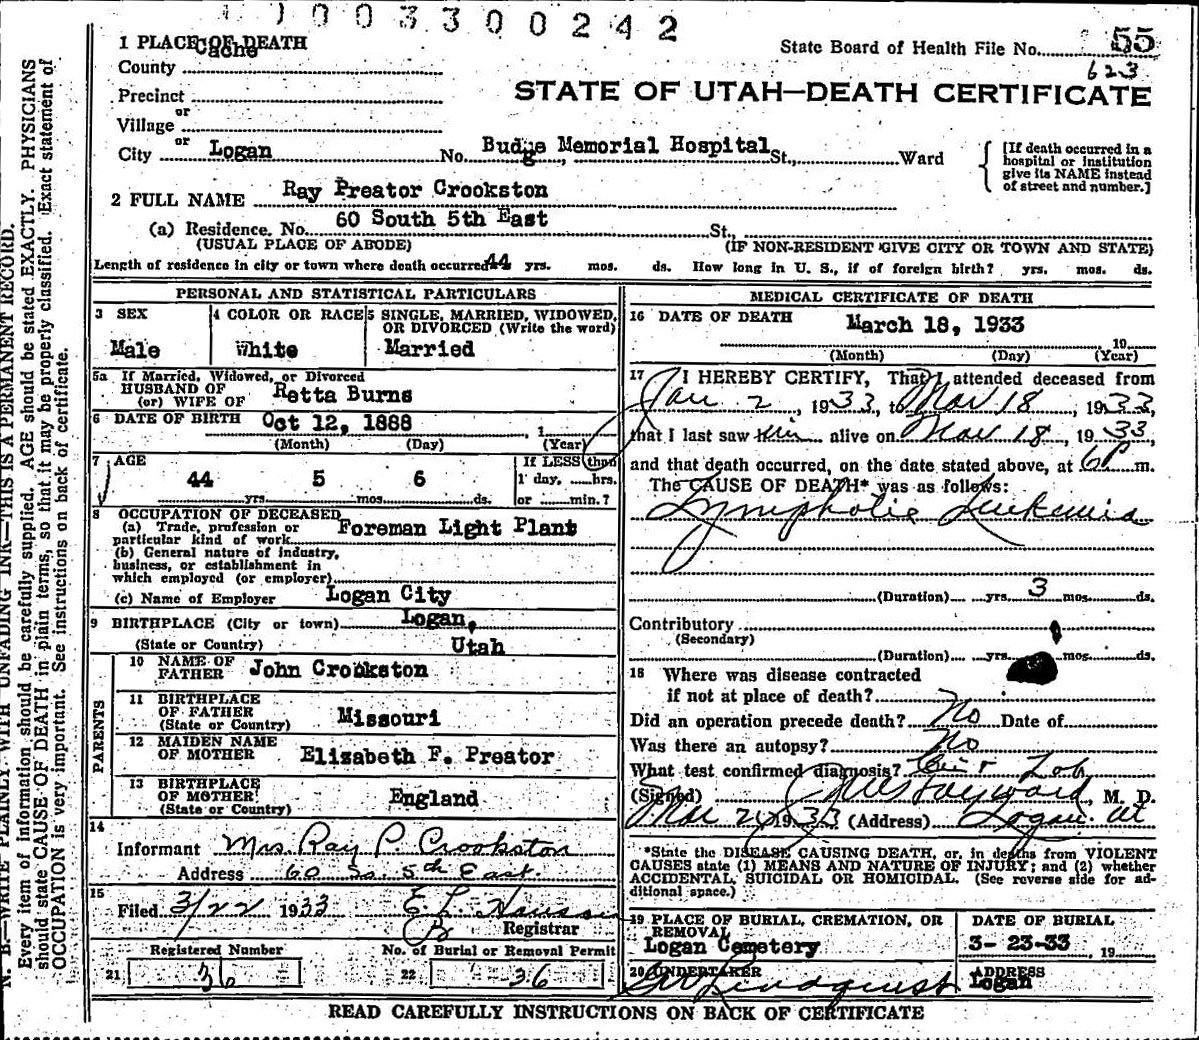 003300242
1 PLACE OF DEATH
Cache
State Board of Health File No. 55
County
623
Precinct
STATE OF UTAH—DEATH CERTIFICATE
or
Village
or
City Logan No. Budge Memorial Hospital St., Ward
[If death occurred in a hospital or institution give its NAME instead of street and number.]
2 FULL NAME Ray Preator Crookston
(a) Residence. No. 60 South 5th East St.,
(USUAL PLACE OF ABODE) (IF NON-RESIDENT GIVE CITY OR TOWN AND STATE)
Length of residence in city or town where death occurred 44 yrs. mos. ds. How long in U. S., if of foreign birth? yrs. mos. ds.
PERSONAL AND STATISTICAL PARTICULARS
3 SEX 4 COLOR OR RACE 5 SINGLE, MARRIED, WIDOWED, OR DIVORCED (Write the word)
Male White Married
5a If Married, Widowed, or Divorced
HUSBAND OF
(or) WIFE OF Retta Burns
6 DATE OF BIRTH Oct 12, 1888 1
(Month) (Day) (Year)
7 AGE If LESS than
44 5 6 1 day, hrs.
yrs. mos. ds. or min.?
8 OCCUPATION OF DECEASED
(a) Trade, profession or
particular kind of work Foreman Light Plant
(b) General nature of industry,
business, or establishment in
which employed (or employer)
(c) Name of Employer Logan City
9 BIRTHPLACE (City or town) Logan,
(State or Country) Utah
PARENTS
10 NAME OF
FATHER John Crookston
11 BIRTHPLACE
OF FATHER Missouri
(State or Country)
12 MAIDEN NAME
OF MOTHER Elizabeth F. Preator
13 BIRTHPLACE
OF MOTHER England
(State or Country)
14
Informant Mrs. Ray P. Crookston
Address 60 So. 5th East.
15
Filed 3/22 1933 E. L. Hansen
Registrar
Registered Number No. of Burial or Removal Permit
21 36 22 36
MEDICAL CERTIFICATE OF DEATH
16 DATE OF DEATH March 18, 1933
19
(Month) (Day) (Year)
17 I HEREBY CERTIFY, That I attended deceased from
Jan 2, 1933, to Mar 18, 1933,
that I last saw him alive on Mar 18, 1933,
and that death occurred, on the date stated above, at 6P m.
The CAUSE OF DEATH* was as follows:
Lymphotic Leukemia
(Duration) yrs. 3 mos. ds.
Contributory
(Secondary)
(Duration) yrs. mos. ds.
18 Where was disease contracted
if not at place of death?
Did an operation precede death? No Date of
Was there an autopsy? No
What test confirmed diagnosis? Lab
(Signed) Hayward, M. D.
Mar 1933 (Address) Logan Ut
*State the DISEASE CAUSING DEATH, or, in deaths from VIOLENT
CAUSES state (1) MEANS AND NATURE OF INJURY; and (2) whether
ACCIDENTAL, SUICIDAL OR HOMICIDAL. (See reverse side for ad-
ditional space.)
19 PLACE OF BURIAL, CREMATION, OR REMOVAL DATE OF BURIAL
Logan Cemetery 3-23-33 19
20 UNDERTAKER ADDRESS
Lindquist Logan
READ CAREFULLY INSTRUCTIONS ON BACK OF CERTIFICATE
N. B.—WRITE PLAINLY WITH UNFADING INK—THIS IS A PERMANENT RECORD.
Every item of information should be carefully supplied. AGE should be stated EXACTLY. PHYSICIANS
should state CAUSE OF DEATH in plain terms, so that it may be properly classified. Exact statement of
OCCUPATION is very important. See instructions on back of certificate.